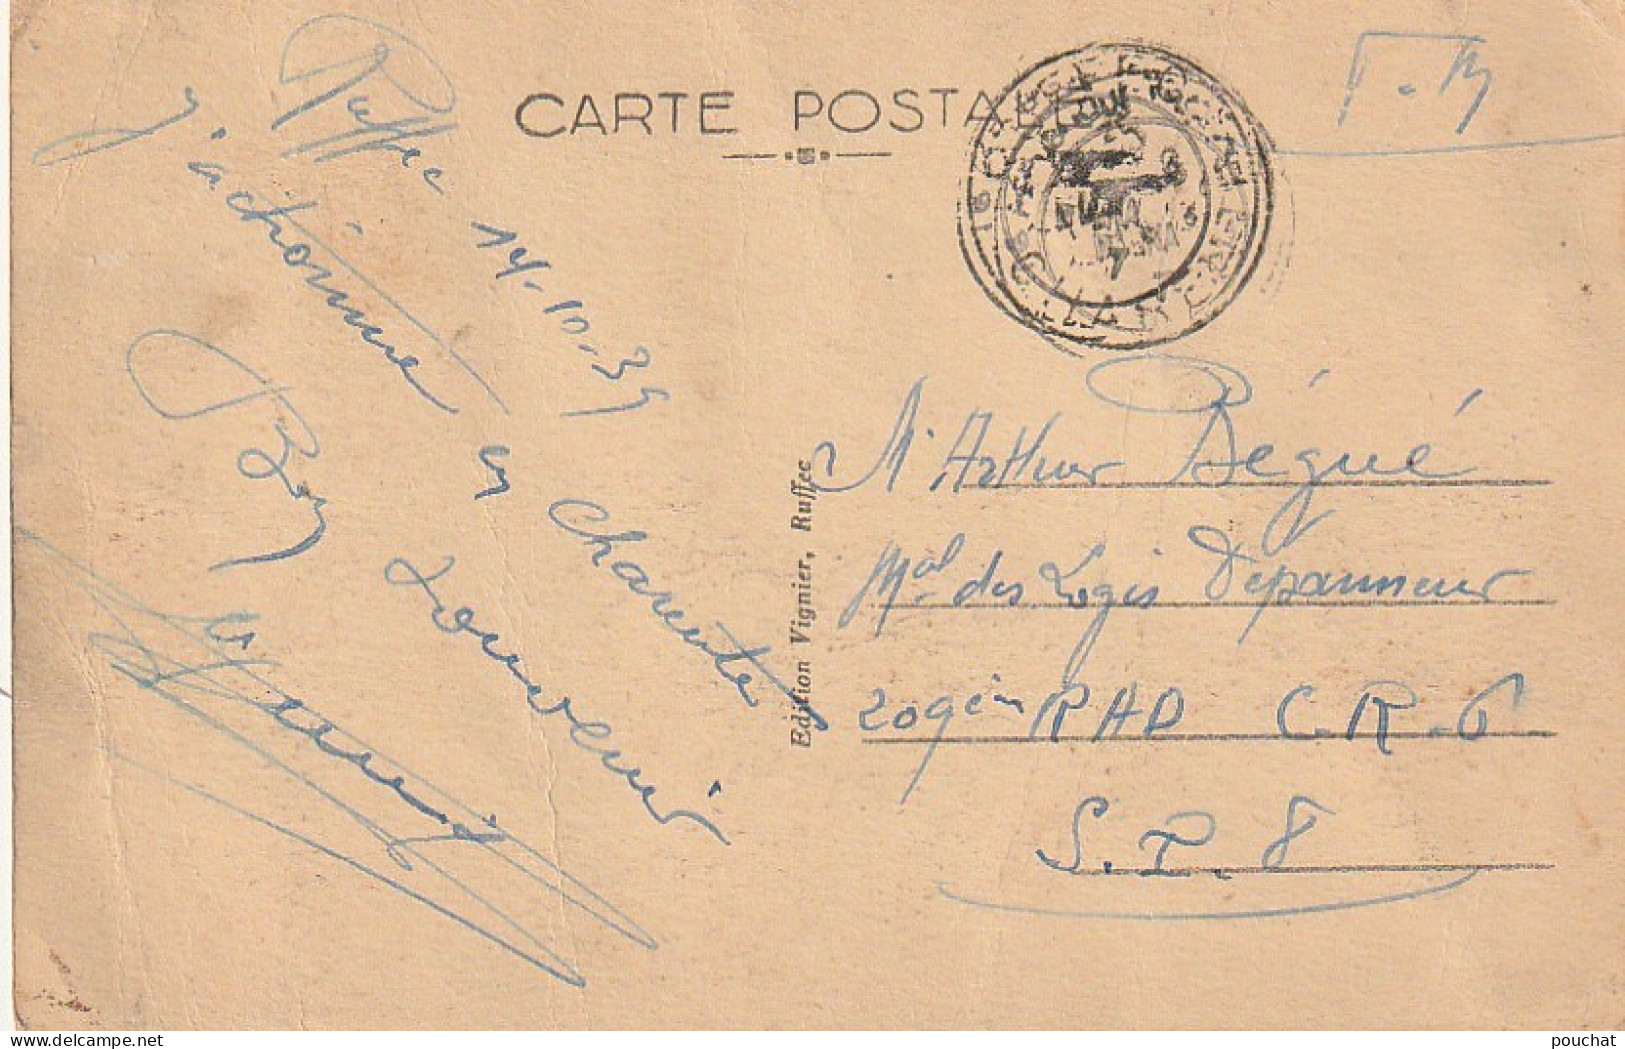 CARTE POSTALE
F.M
Ruffec 14-10-39
J'actionne en Charente
Bon souvenir
Edition Vignier, Ruffec
Mr Arthur Bégué
Mal des Logis Dépanneur
209èm RAD C.R.6
S.P. 8
pouchat